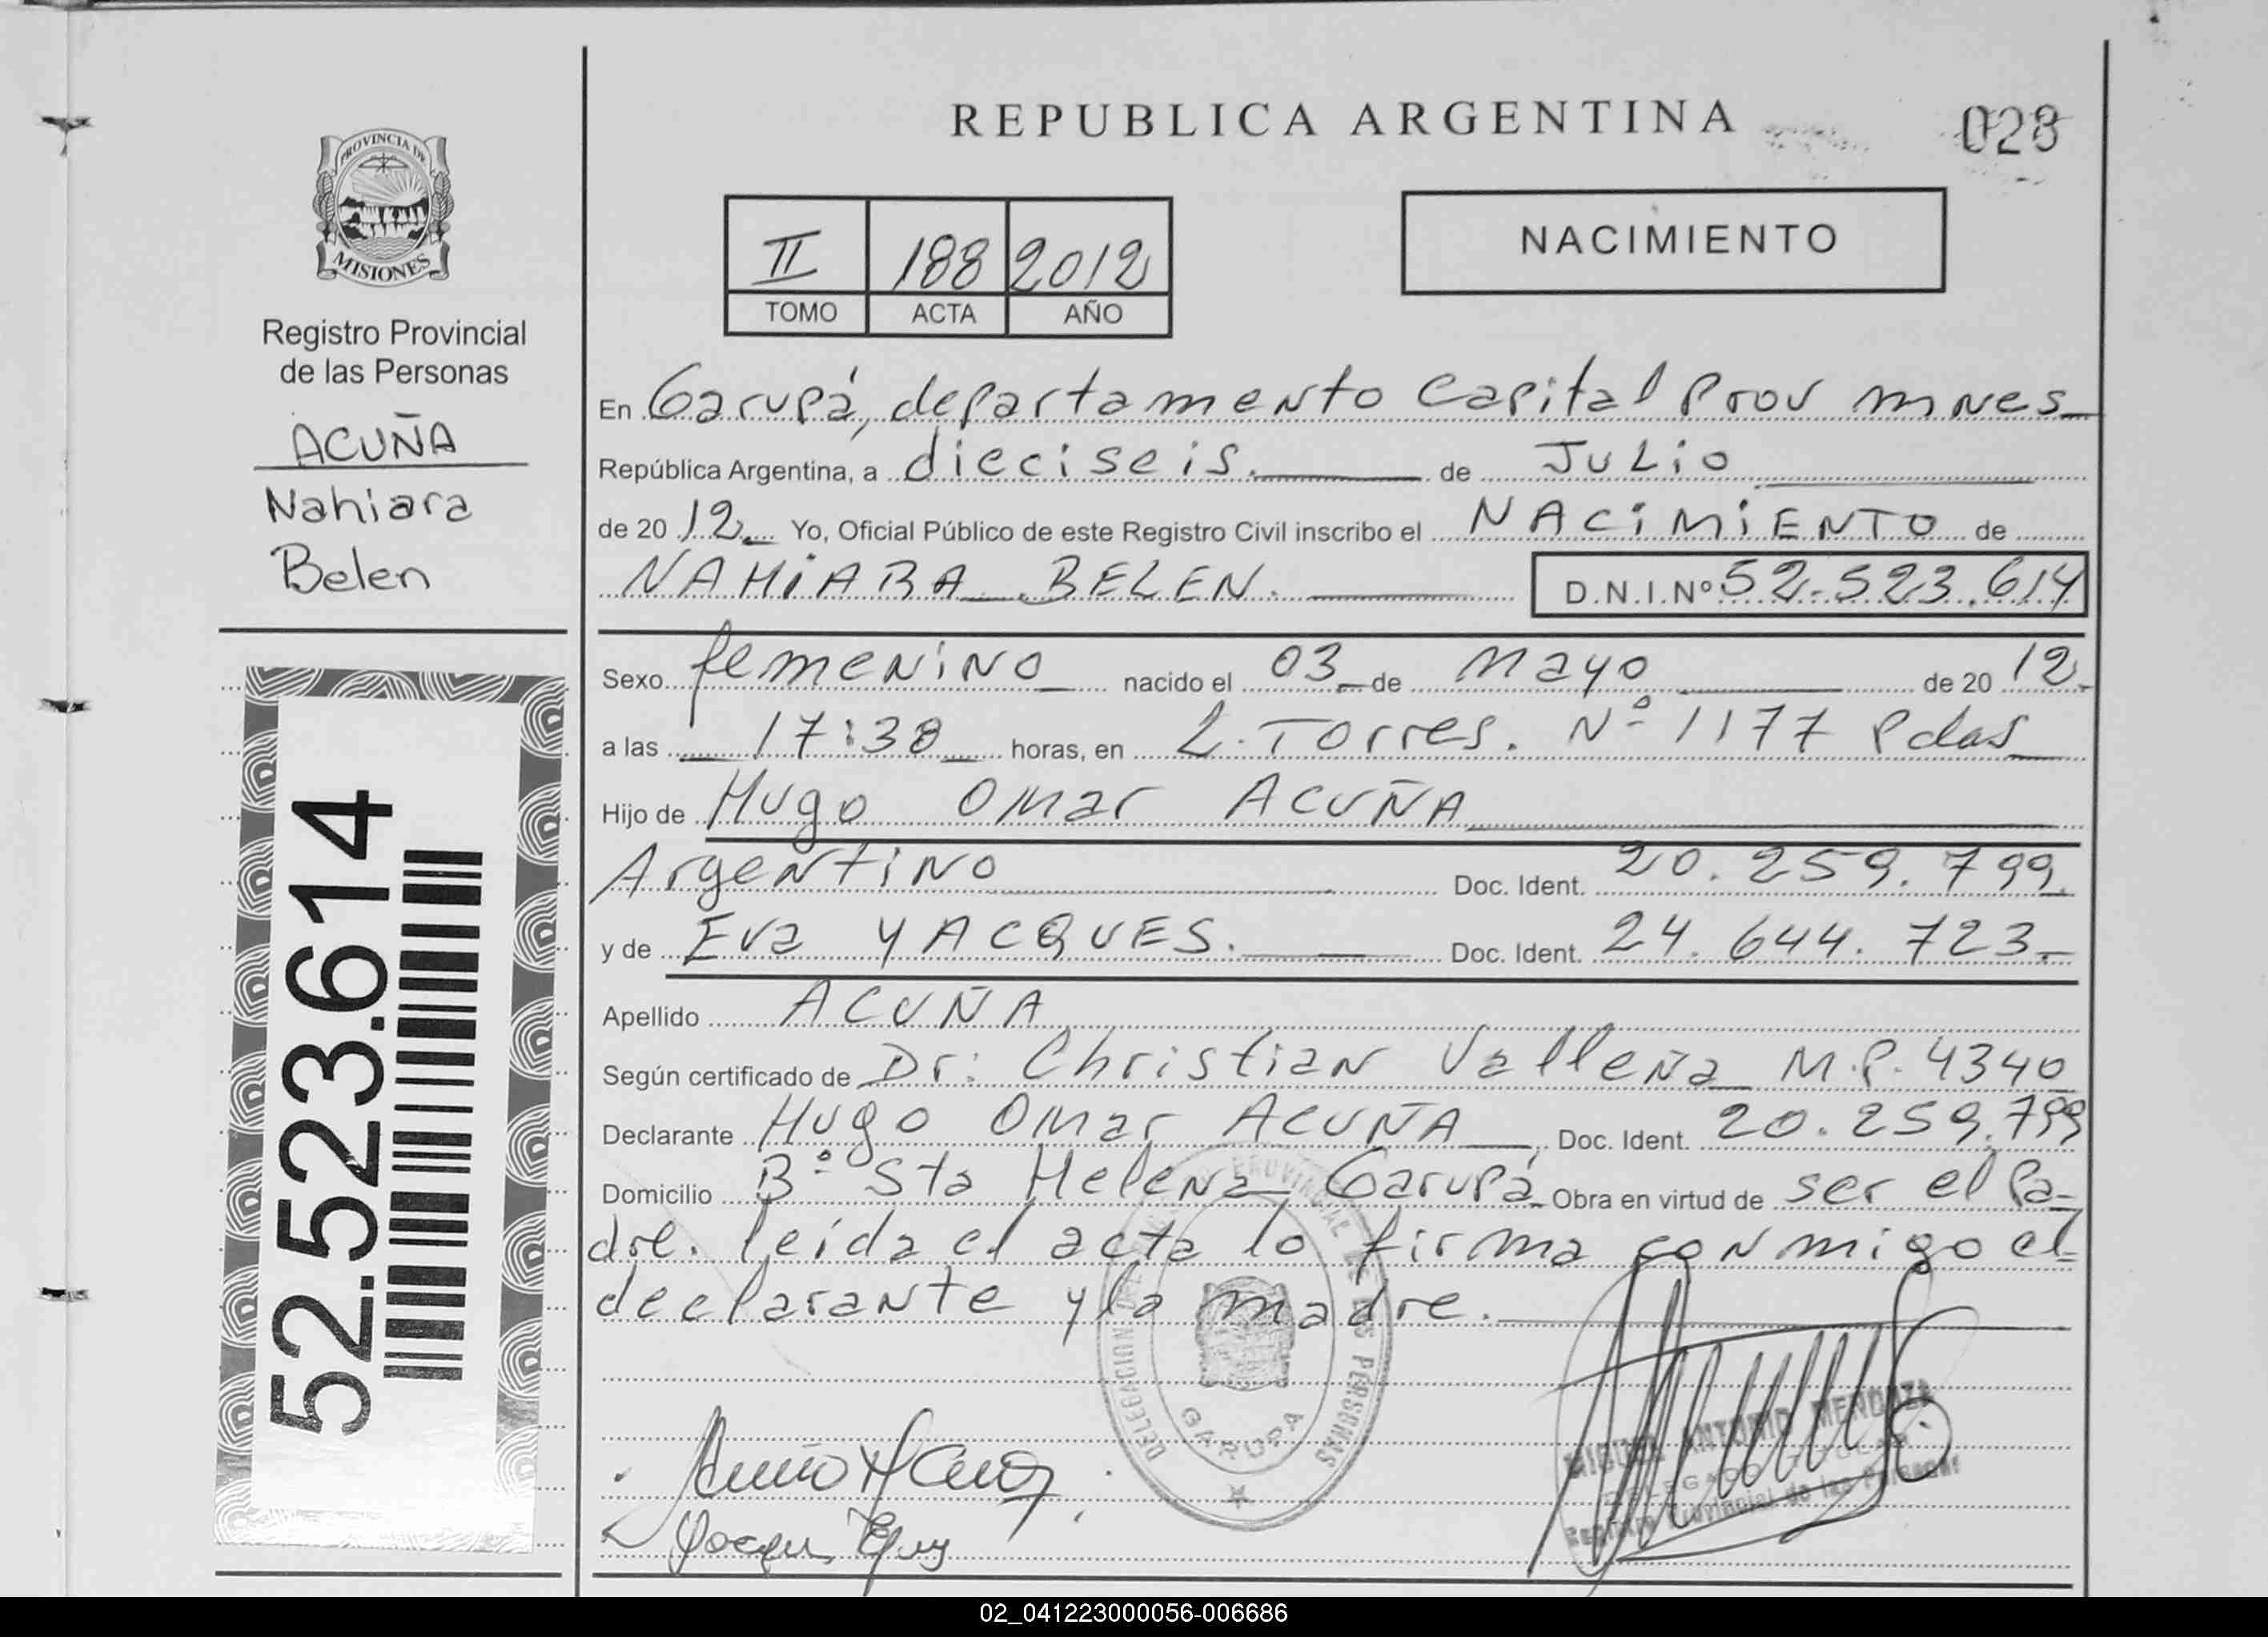 REPUBLICA ARGENTINA
028
PROVINCIA DE
MISIONES
Registro Provincial
de las Personas
ACUÑA
Nahiara
Belen
52.523.614
II 188 2012
TOMO ACTA AÑO
NACIMIENTO
En Garupá, departamento Capital Prov mnes
República Argentina, a dieciseis. de Julio
de 20 12 Yo, Oficial Público de este Registro Civil inscribo el NACIMIENTO de
NAHIARA BELEN. D.N.I.Nº 52.523.614
Sexo femenino nacido el 03 de mayo de 20 12
a las 17:38 horas, en L. Torres. Nº 1177 Pdas
Hijo de Hugo Omar ACUÑA
Argentino Doc. Ident. 20.259.799
y de Eva YACQUES. Doc. Ident. 24.644.723
Apellido ACUÑA
Según certificado de Dr: Christian Valleña M.P. 4340
Declarante Hugo Omar ACUÑA Doc. Ident. 20.259.799
Domicilio Bº Sta Helena Garupá Obra en virtud de ser el Pa-
dre. leida el acta lo firma conmigo el
declarante y la madre.
DELEGACION PROVINCIAL DE LAS PERSONAS
GARUPA
MIGUEL ANTONIO MENDOZA
DELEGADO TITULAR
Registro Provincial de las Personas
02_041223000056-006686